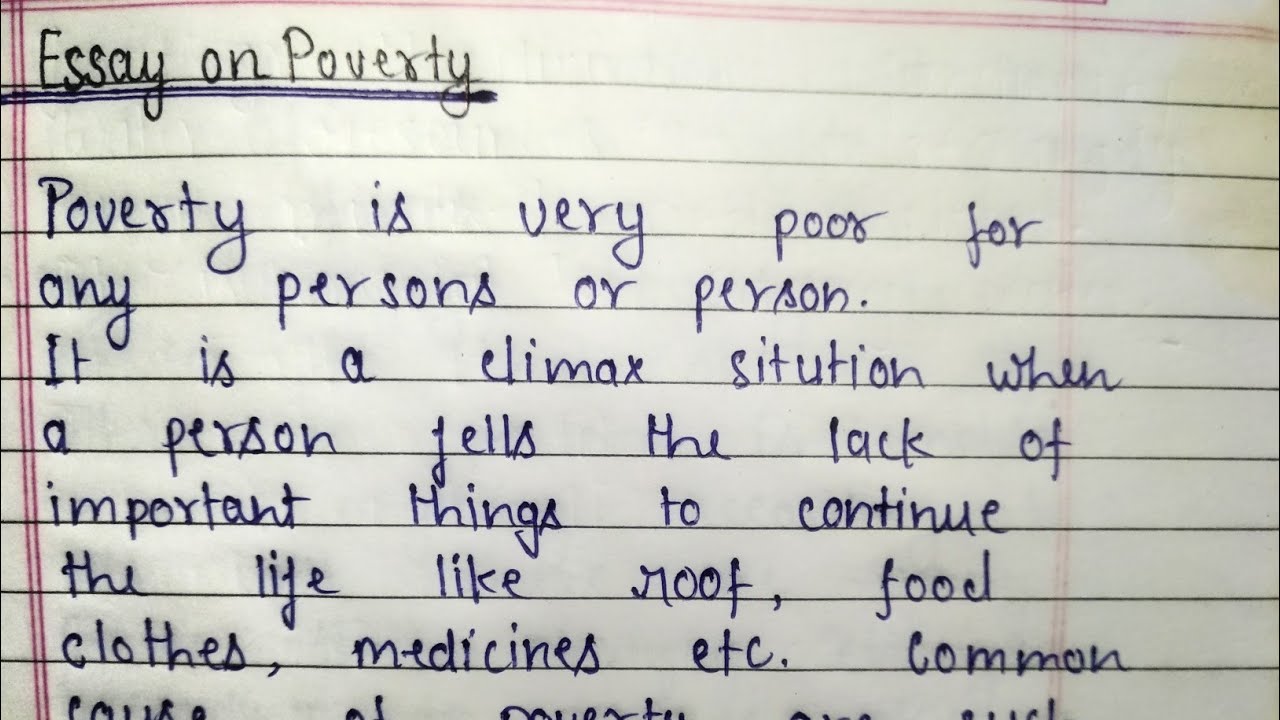 Essay on Poverty
Poverty is very poor for
any persons or person.
It is a climax sitution when
a person fells the lack of
important things to continue
the life like roof, food
clothes, medicines etc. common
cause of poverty are such